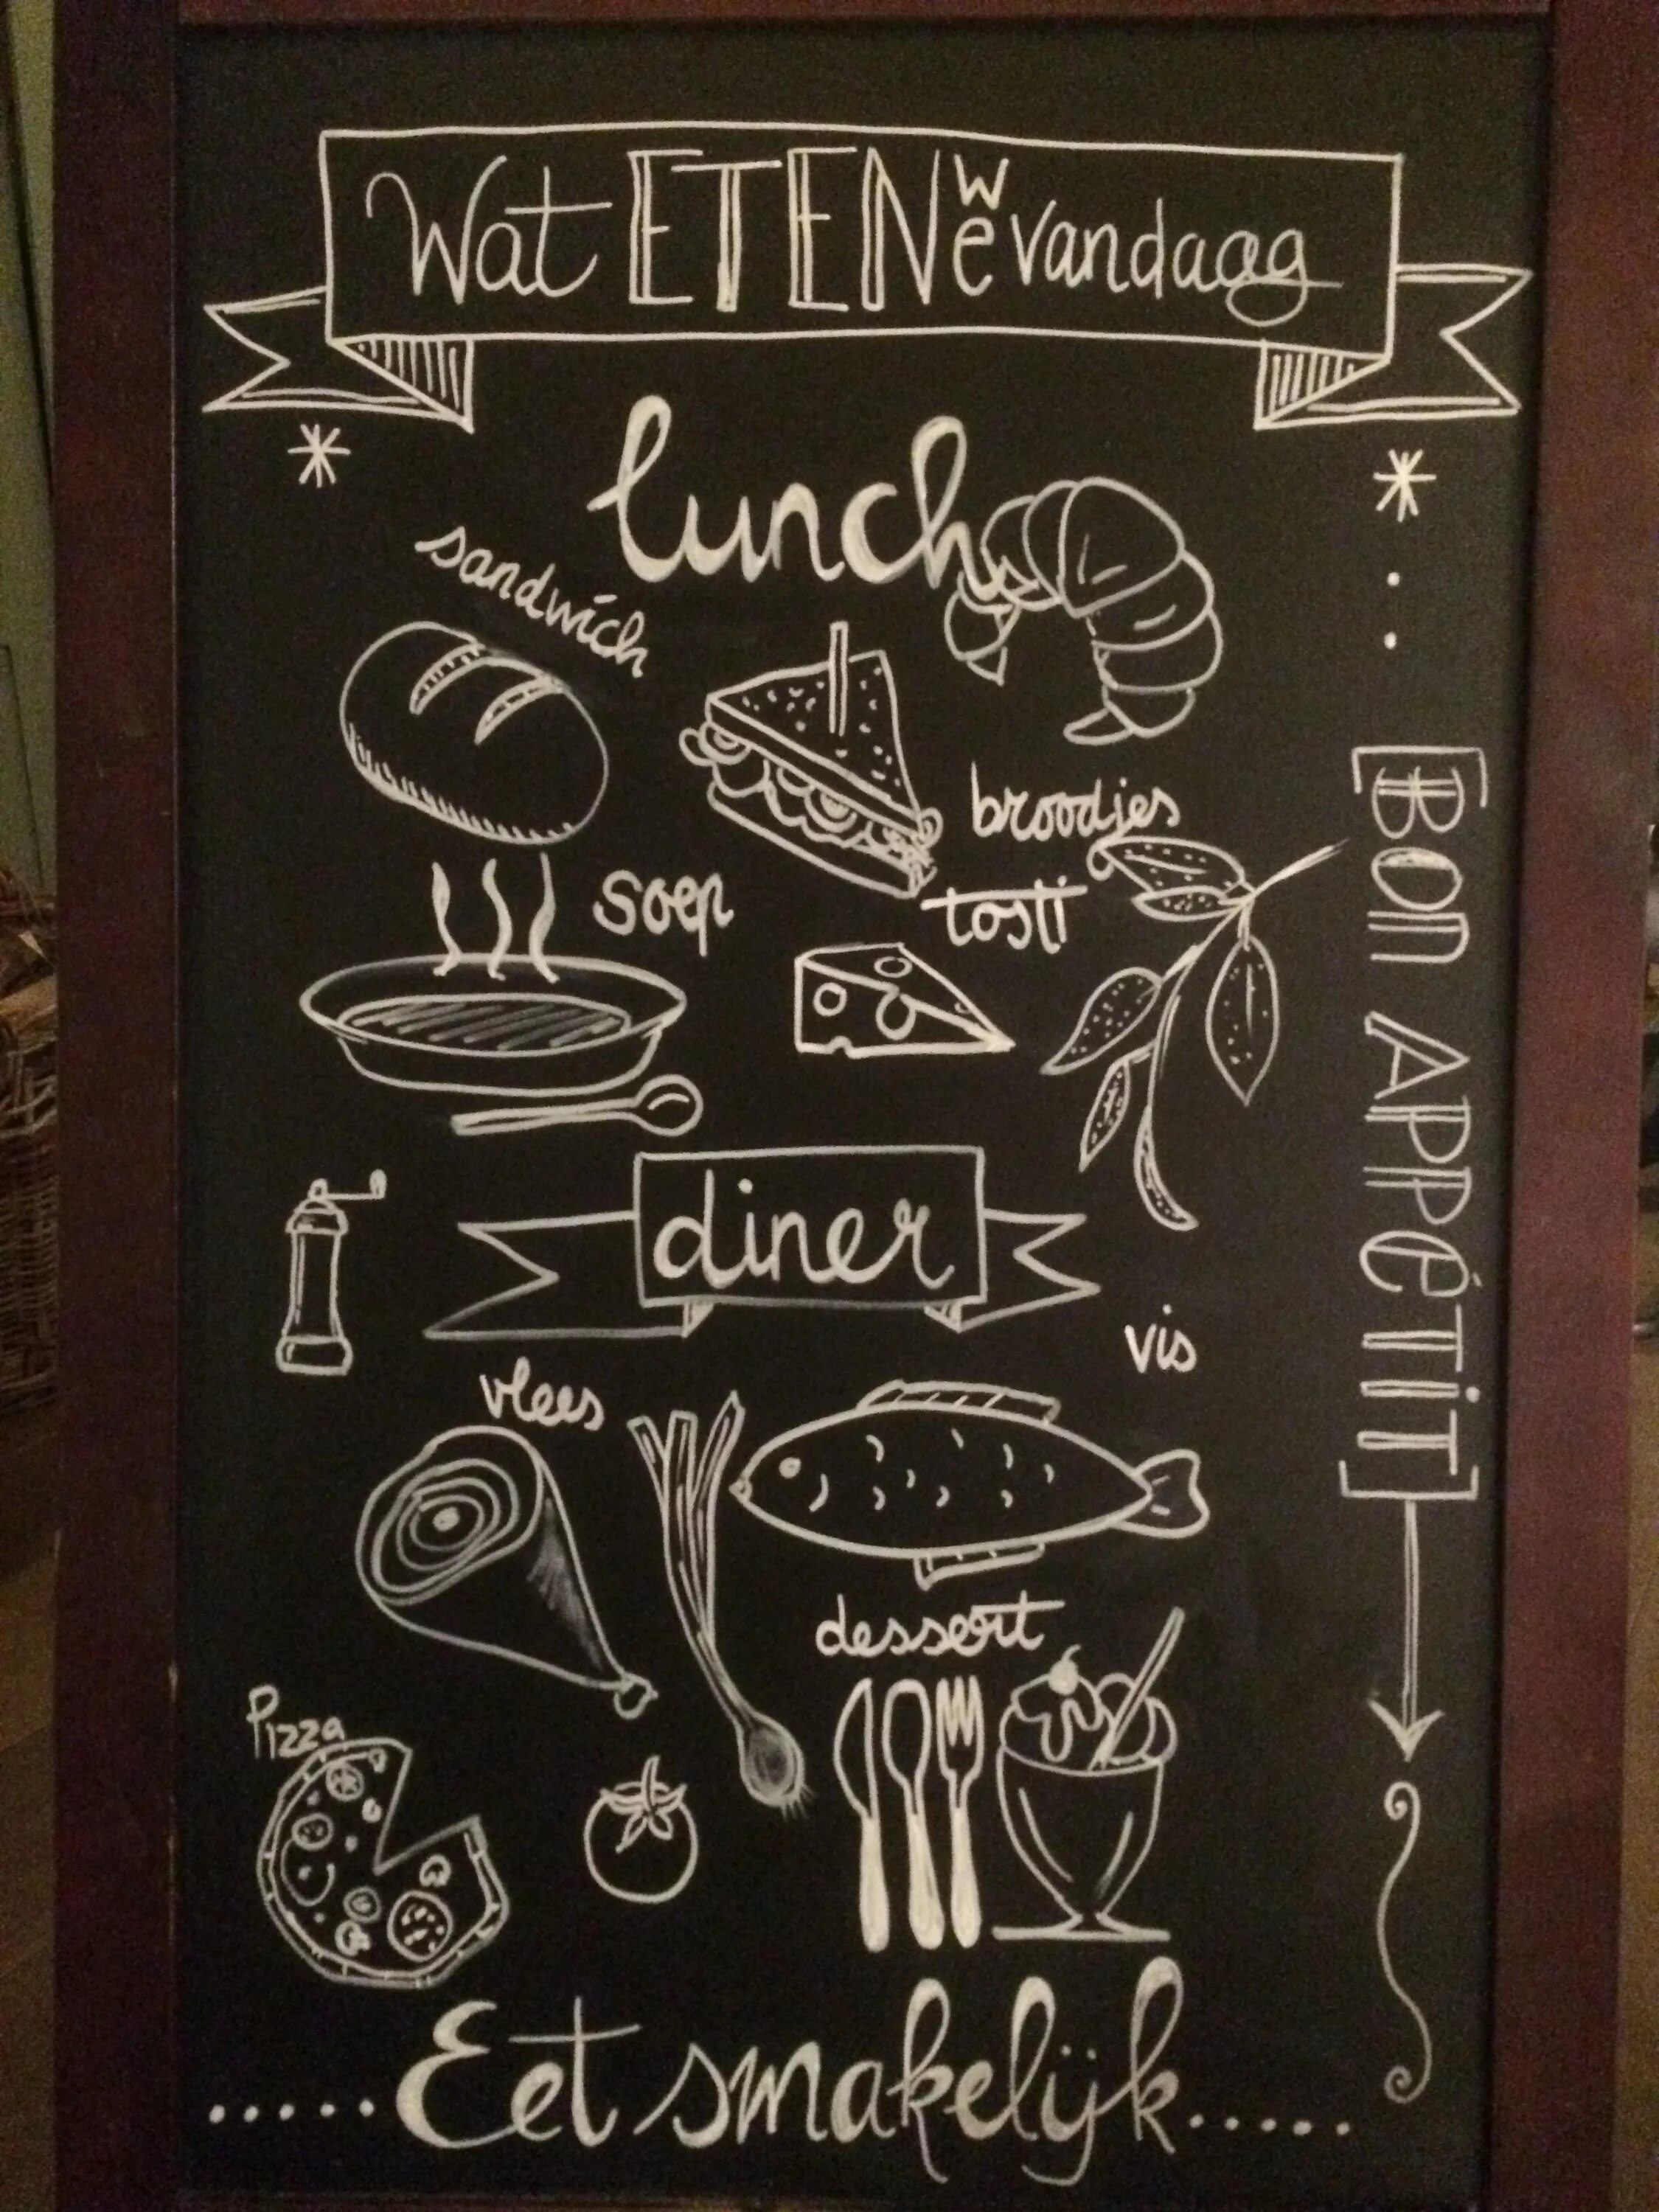 Wat ETEN we vandaag
lunch
sandwich
broodjes
soep
tosti
[BON APPéTiT]
diner
vis
vlees
dessert
Pizza
.....Eet smakelijk.....